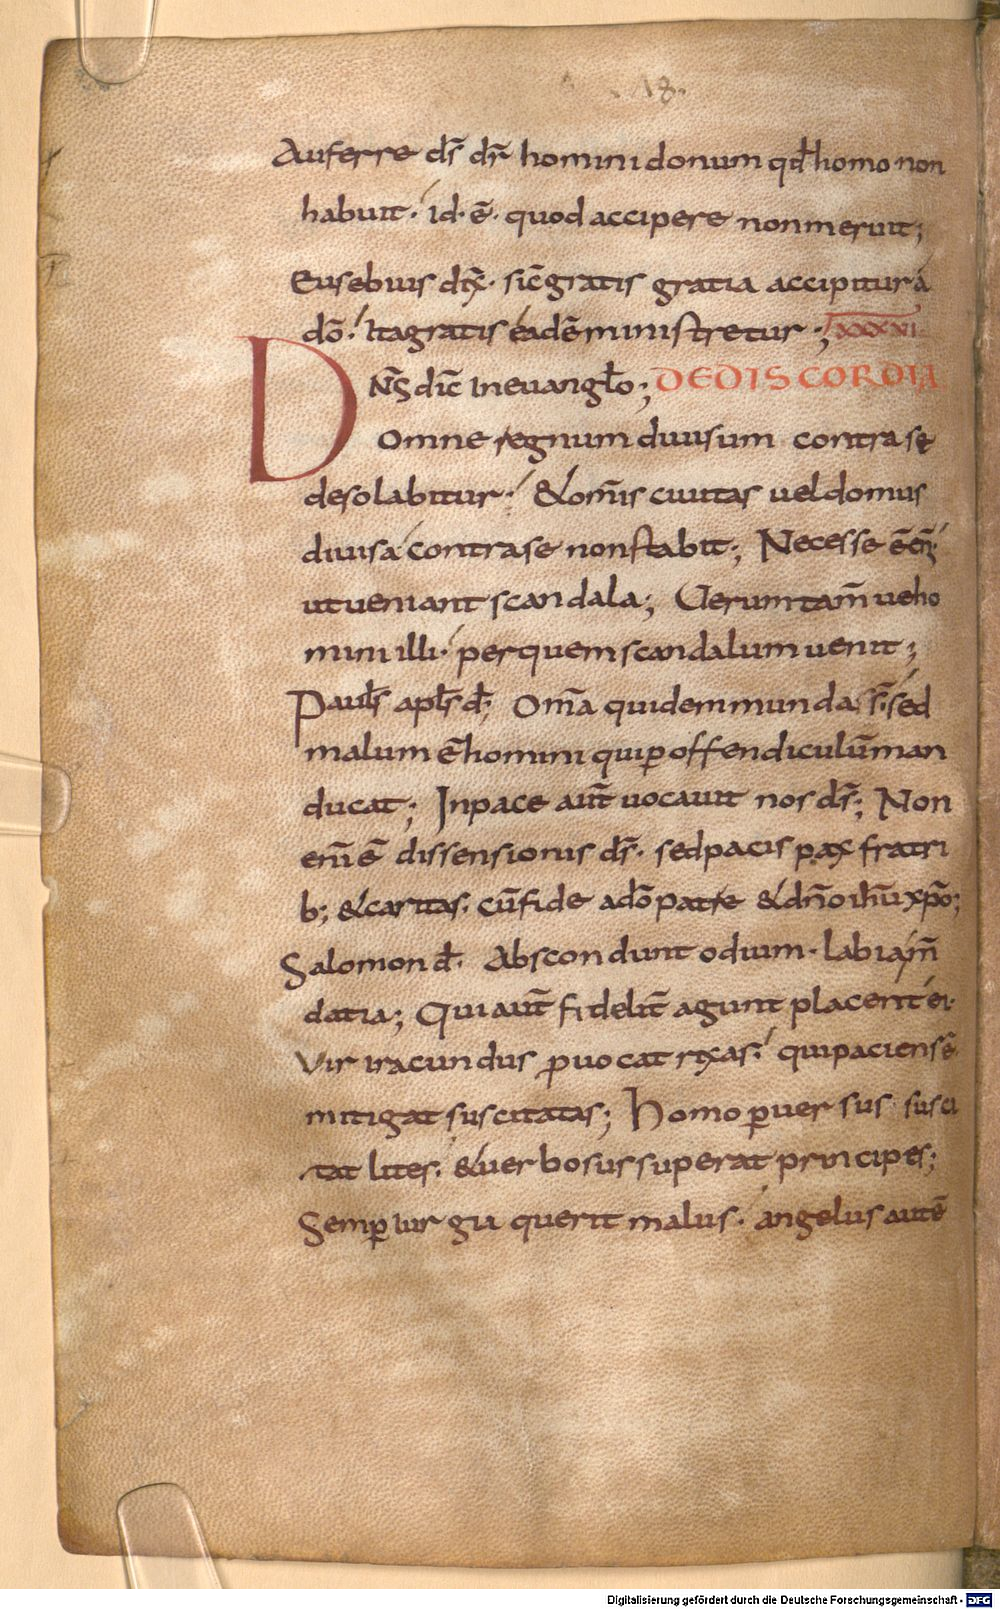 18.
Auferre ds̄ dr̄ homini donum qd̄ homo non
habuit· id·ē· quod accipere non meruit;
Eusebius dix̄· sic̄ gratis gratia accipitur a
dō· Ita gratis eadē ministretur; XXXVI
DN̄S dic̄ In euanglo; DE DISCORDIA
Omne regnum diuisum contra se
desolabitur· & om̄is ciuitas uel domus
diuisa contra se non stabit; Necesse ē eni̅
ut ueniant scandala; Uerumtam̄ ue ho
mini illi· per quem scandalum uenit;
Paul̄s apl̄s d̄; Om̄a quidem munda s̄· sed
malum ē homini qui ꝑ offendiculū man
ducat; In pace aut̄ uocauit nos ds̄; Non
eni̅ ē dissensionis ds̄· sed pacis pax fratri
b; & caritas· cū fide a dō patre & dn̄o ih̄u xp̄o;
Salomon d̄· Abscondunt odium· labia m̄
datia; Qui aut̄ fidelit̄ agunt placent ei·
Vir iracundus ꝓuocat rixas· qui paciens ē
mitigat suscitatas; Homo ꝑuersus susci
tat lites· & uerbosus superat principes;
Semꝑ iurgia querit malus· angelus autē
Digitalisierung gefördert durch die Deutsche Forschungsgemeinschaft - DFG